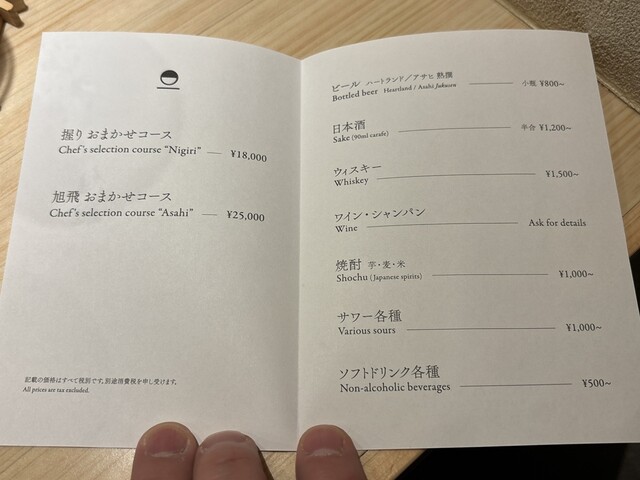 握り おまかせコース
Chef's selection course "Nigiri" ¥18,000
旭飛 おまかせコース
Chef's selection course "Asahi" ¥25,000
記載の価格はすべて税別です。別途消費税を申し受けます。
All prices are tax excluded.
ビール ハートランド／アサヒ 熟撰 小瓶 ¥800~
Bottled beer Heartland / Asahi Jukusen
日本酒 半合 ¥1,200~
Sake (90ml carafe)
ウィスキー ¥1,500~
Whiskey
ワイン・シャンパン Ask for details
Wine
焼酎 芋・麦・米 ¥1,000~
Shochu (Japanese spirits)
サワー各種 ¥1,000~
Various sours
ソフトドリンク各種 ¥500~
Non-alcoholic beverages